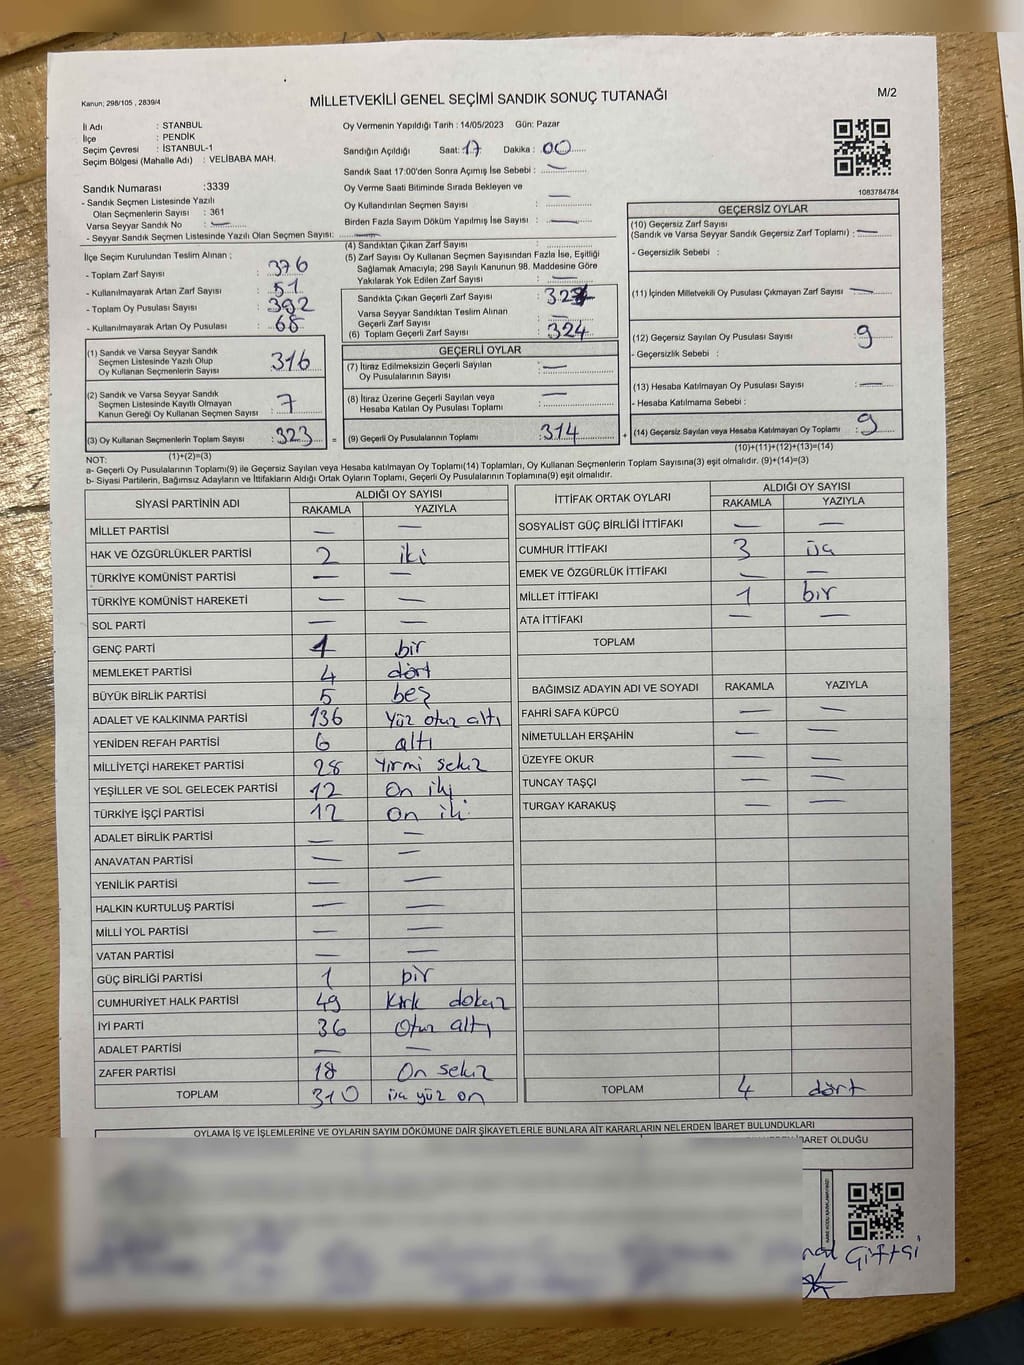 Kanun; 298/105 , 2839/4
MİLLETVEKİLİ GENEL SEÇİMİ SANDIK SONUÇ TUTANAĞI
M/2
İl Adı : STANBUL
İlçe : PENDİK
Seçim Çevresi : İSTANBUL-1
Seçim Bölgesi (Mahalle Adı) : VELİBABA MAH.
Sandık Numarası :3339
- Sandık Seçmen Listesinde Yazılı
Olan Seçmenlerin Sayısı : 361
Varsa Seyyar Sandık No : —
- Seyyar Sandık Seçmen Listesinde Yazılı Olan Seçmen Sayısı: —
Oy Vermenin Yapıldığı Tarih : 14/05/2023 Gün: Pazar
Sandığın Açıldığı Saat: 17 Dakika : 00
Sandık Saat 17:00'den Sonra Açımış İse Sebebi : —
Oy Verme Saati Bitiminde Sırada Bekleyen ve
Oy Kullandırılan Seçmen Sayısı : —
Birden Fazla Sayım Döküm Yapılmış İse Sayısı : —
1083784784
İlçe Seçim Kurulundan Teslim Alınan ;
- Toplam Zarf Sayısı : 376
- Kullanılmayarak Artan Zarf Sayısı : 51
- Toplam Oy Pusulası Sayısı : 392
- Kullanılmayarak Artan Oy Pusulası : 68
(1) Sandık ve Varsa Seyyar Sandık
Seçmen Listesinde Yazılı Olup
Oy Kullanan Seçmenlerin Sayısı : 316
(2) Sandık ve Varsa Seyyar Sandık
Seçmen Listesinde Kayıtlı Olmayan
Kanun Gereği Oy Kullanan Seçmen Sayısı : 7
(3) Oy Kullanan Seçmenlerin Toplam Sayısı : 323
(1)+(2)=(3)
(4) Sandıktan Çıkan Zarf Sayısı :
(5) Zarf Sayısı Oy Kullanan Seçmen Sayısından Fazla İse, Eşitliği
Sağlamak Amacıyla; 298 Sayılı Kanunun 98. Maddesine Göre
Yakılarak Yok Edilen Zarf Sayısı : —
Sandıkta Çıkan Geçerli Zarf Sayısı : 324
Varsa Seyyar Sandıktan Teslim Alınan
Geçerli Zarf Sayısı : —
(6) Toplam Geçerli Zarf Sayısı : 324
GEÇERLİ OYLAR
(7) İtiraz Edilmeksizin Geçerli Sayılan
Oy Pusulalarının Sayısı : —
(8) İtiraz Üzerine Geçerli Sayılan veya
Hesaba Katılan Oy Pusulası Toplamı : —
= (9) Geçerli Oy Pusulalarının Toplamı : 314
GEÇERSİZ OYLAR
(10) Geçersiz Zarf Sayısı
(Sandık ve Varsa Seyyar Sandık Geçersiz Zarf Toplamı) : —
- Geçersizlik Sebebi :
(11) İçinden Milletvekili Oy Pusulası Çıkmayan Zarf Sayısı : —
(12) Geçersiz Sayılan Oy Pusulası Sayısı : 9
- Geçersizlik Sebebi :
(13) Hesaba Katılmayan Oy Pusulası Sayısı : —
- Hesaba Katılmama Sebebi :
+ (14) Geçersiz Sayılan veya Hesaba Katılmayan Oy Toplamı : 9
(10)+(11)+(12)+(13)=(14)
NOT:
a- Geçerli Oy Pusulalarının Toplamı(9) ile Geçersiz Sayılan veya Hesaba katılmayan Oy Toplamı(14) Toplamları, Oy Kullanan Seçmenlerin Toplam Sayısına(3) eşit olmalıdır. (9)+(14)=(3)
b- Siyasi Partilerin, Bağımsız Adayların ve İttifakların Aldığı Ortak Oyların Toplamı, Geçerli Oy Pusulalarının Toplamına(9) eşit olmalıdır.
SİYASİ PARTİNİN ADI ALDIĞI OY SAYISI
RAKAMLA YAZIYLA
MİLLET PARTİSİ — —
HAK VE ÖZGÜRLÜKLER PARTİSİ 2 iki
TÜRKİYE KOMÜNİST PARTİSİ — —
TÜRKİYE KOMÜNİST HAREKETİ — —
SOL PARTİ — —
GENÇ PARTİ 1 bir
MEMLEKET PARTİSİ 4 dört
BÜYÜK BİRLİK PARTİSİ 5 beş
ADALET VE KALKINMA PARTİSİ 136 Yüz otuz altı
YENİDEN REFAH PARTİSİ 6 altı
MİLLİYETÇİ HAREKET PARTİSİ 28 Yirmi sekiz
YEŞİLLER VE SOL GELECEK PARTİSİ 12 On iki
TÜRKİYE İŞÇİ PARTİSİ 12 On iki
ADALET BİRLİK PARTİSİ — —
ANAVATAN PARTİSİ — —
YENİLİK PARTİSİ — —
HALKIN KURTULUŞ PARTİSİ — —
MİLLİ YOL PARTİSİ — —
VATAN PARTİSİ — —
GÜÇ BİRLİĞİ PARTİSİ 1 bir
CUMHURİYET HALK PARTİSİ 49 Kırk dokuz
İYİ PARTİ 36 Otuz altı
ADALET PARTİSİ — —
ZAFER PARTİSİ 18 On sekiz
TOPLAM 310 üç yüz on
İTTİFAK ORTAK OYLARI ALDIĞI OY SAYISI
RAKAMLA YAZIYLA
SOSYALİST GÜÇ BİRLİĞİ İTTİFAKI — —
CUMHUR İTTİFAKI 3 üç
EMEK VE ÖZGÜRLÜK İTTİFAKI — —
MİLLET İTTİFAKI 1 bir
ATA İTTİFAKI — —
TOPLAM
BAĞIMSIZ ADAYIN ADI VE SOYADI RAKAMLA YAZIYLA
FAHRİ SAFA KÜPCÜ — —
NİMETULLAH ERŞAHİN — —
ÜZEYFE OKUR — —
TUNCAY TAŞÇI — —
TURGAY KARAKUŞ — —
TOPLAM 4 dört
OYLAMA İŞ VE İŞLEMLERİNE VE OYLARIN SAYIM DÖKÜMÜNE DAİR ŞİKAYETLERLE BUNLARA AİT KARARLARIN NELERDEN İBARET BULUNDUKLARI
İBARET OLDUĞU
Giftsi